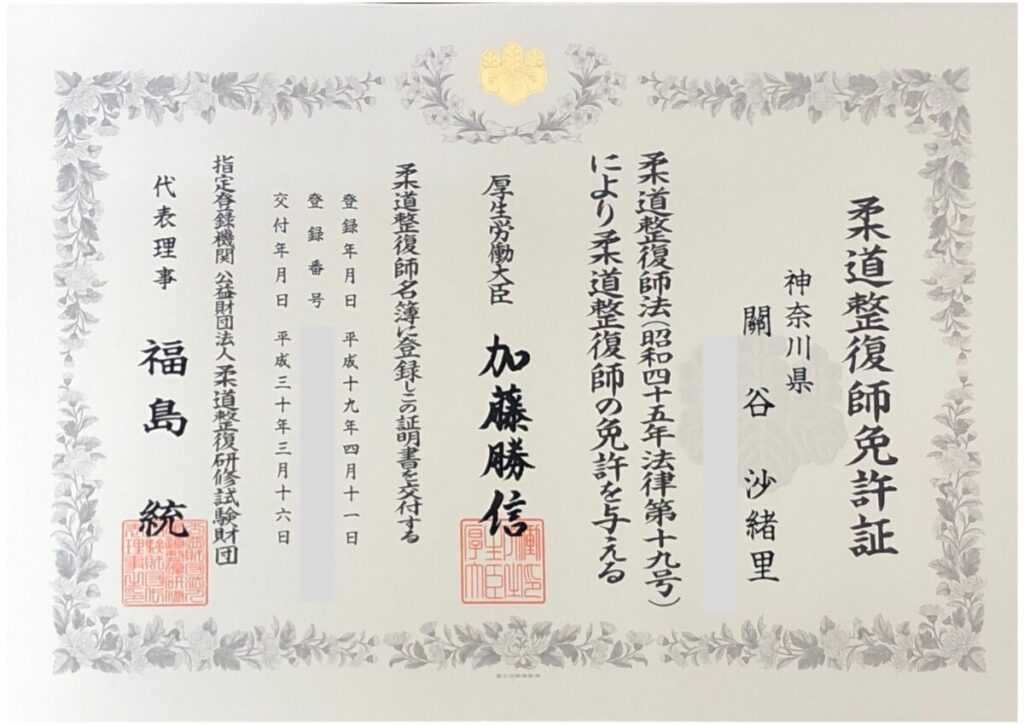 柔道整復師免許証
神奈川県
關谷 沙緒里
柔道整復師法(昭和四十五年法律第十九号)
により柔道整復師の免許を与える
厚生労働大臣 加藤勝信
柔道整復師名簿に登録しこの証明書を交付する
登録年月日 平成十九年四月十一日
登録番号
交付年月日 平成三十年三月十六日
指定登録機関 公益財団法人 柔道整復研修試験財団
代表理事 福島 統